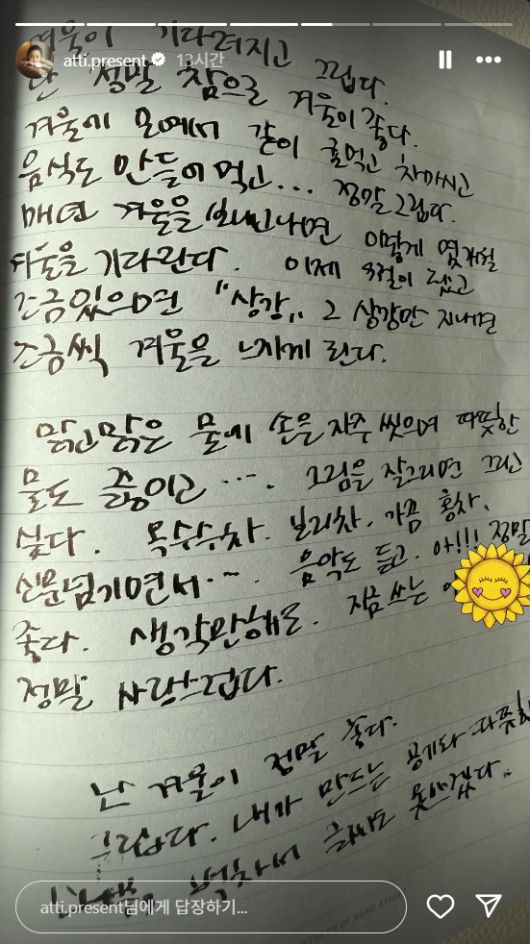 atti.present 13시간
겨울이 기다려지고 그립다.
난 정말 참으로 겨울이 좋다.
겨울에 모여서 같이 귤먹고 차마시고
음식도 만들어 먹고... 정말 그립다.
매년 겨울을 보내고나면 이렇게
겨울을 기다린다. 이제 9월이 됐고
조금있으면 "상강" 그 상강만 지나면
조금씩 겨울을 느끼게 된다.
맑고맑은 물에 손을 자주 씻으며 따뜻한
물도 끓이고 .... 그림을 잘그리면 그리고
싶다. 옥수수차. 보리차. 가끔 홍차.
신문넘기면서.... 음악도 듣고. 아!!! 정말
좋다. 생각만해도. 지금 쓰는
정말 사랑스럽다.
난 겨울이 정말 좋다.
그립다. 내가 만드는 공기와 따뜻한
벅차서 글씨도 못쓰겠다..
atti.present님에게 답장하기...